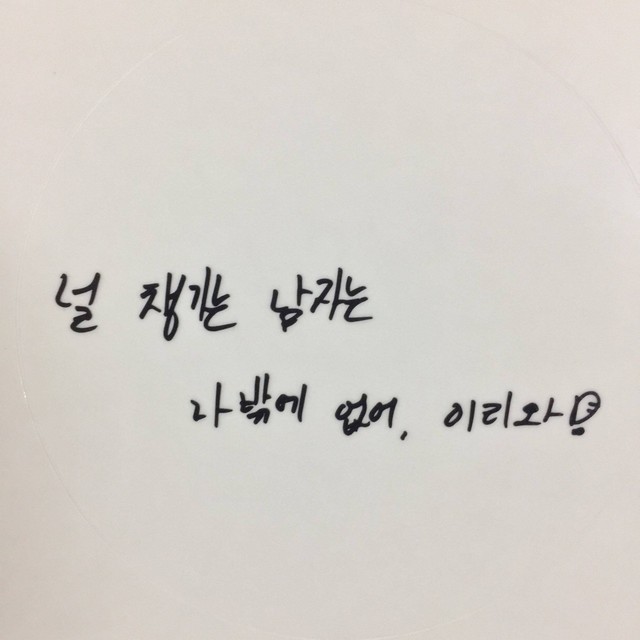 널 챙기는 남자는
나밖에 없어, 이리와!